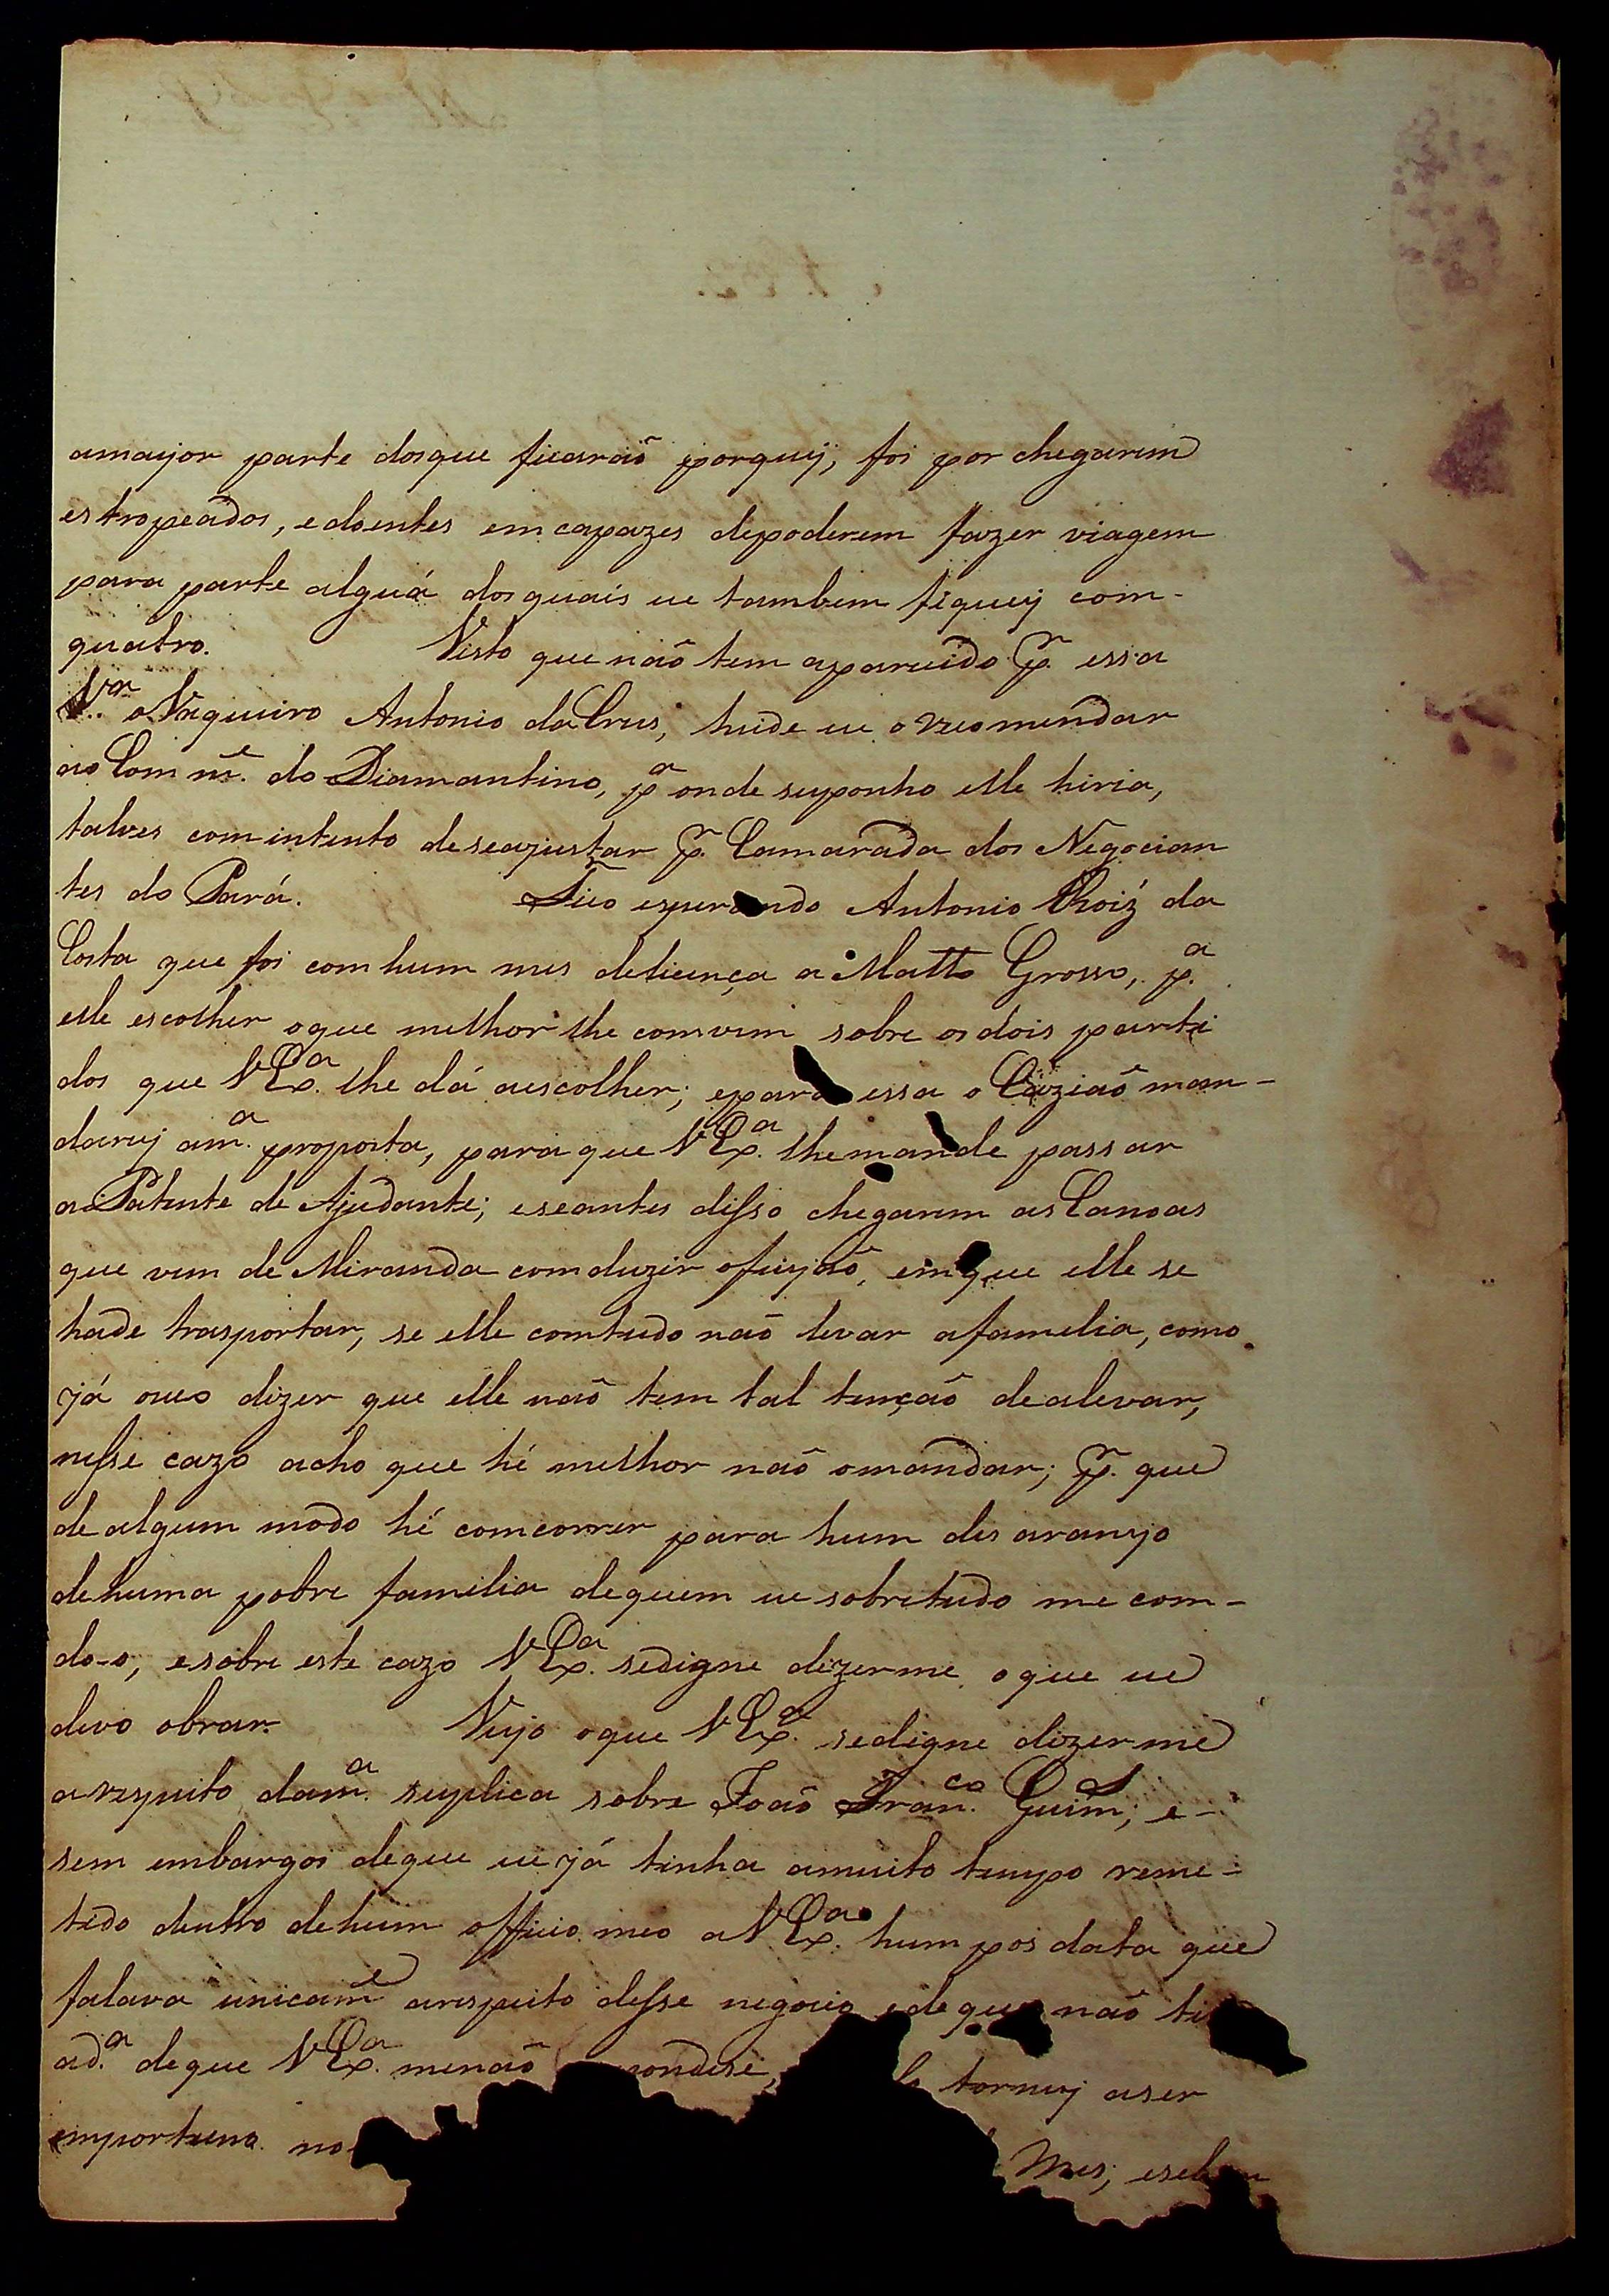 amayor parte dosque ficaraõ porquy, foi por chegarem
estropeados, edoentes emcapazes depoderem fazer viagem
para parte alguá dosquais eu tambem fiquey com-
quatro. Visto que naõ tem aparecido p.r essa
V.a o Vaqueiro Antonio da Crus, heide eu o recomendar
ao Comm.e do Diamantino, p.a onde suponho elle hiria,
talves comintento deseajustar p.r Camarada dos Negocian
tes do Pará. Fico esperando Antonio Roiz da
Costa que foi comhum mes delicença a Matto Grosso, p.a
elle escolher oque melhor lhe comvem sobre os dois parti
dos que V Ex.a lhe dá aescolher; epara essa o Caziaõ man-
darey am.a proposta, para que V Ex.a lhemande passar
a Patente de Ajudante; eseantes disso chegarem as Canoas
que vem de Miranda comduzir ofeijaõ, emque elle se
hade trasportar, se elle comtudo naõ levar afamelia, como
já ouço dizer que elle naõ tem tal tençaõ dealevar,
nesse cazo acho que hé melhor naõ omandar; p.r que
de algum modo hé comcorrer para hum des aranjo
dehuma pobre familia dequem eu sobretudo me com-
do-o, esobre este cazo V Ex.a sedigne dizerme oque eu
devo obrar. Vejo oque V Ex.a sedigne dizerme
arespeito dam.a suplica sobre Joaõ Fran.co Guim.s; e-
sem embargos deque eu já tinha amuito tempo reme-
tido dentro dehum officio meo a V Ex.a hum pos data que
falava unicam.e arespeito desse negocio edeque naõ ti
ad.a deque V Ex.a menaõ pondese, torney aser
emportuno no Mes; esebem